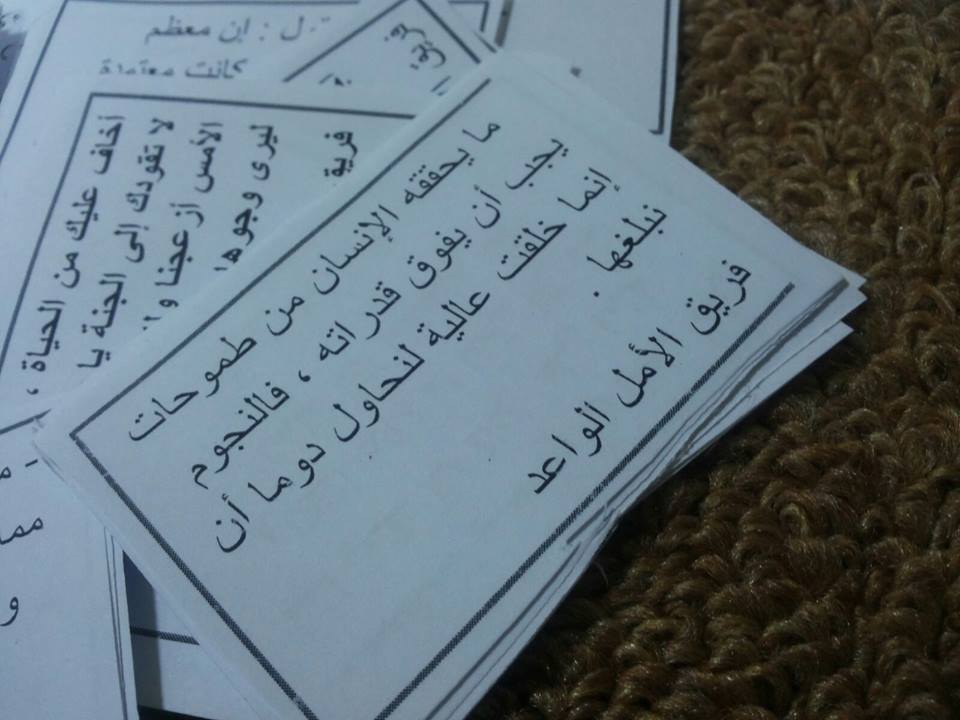 ما يحققه الإنسان من طموحات
يجب أن يفوق قدراته ، فالنجوم
إنما خلقت عالية لنحاول دوما أن
نبلغها .
فريق الأمل الواعد
أخاف عليك من الحياة ،
لا تقودك إلى الجنة يا
الأمس أزعجنا
ليرى وجوها
فريق
ل : إن معظم
كانت معتمدة
و